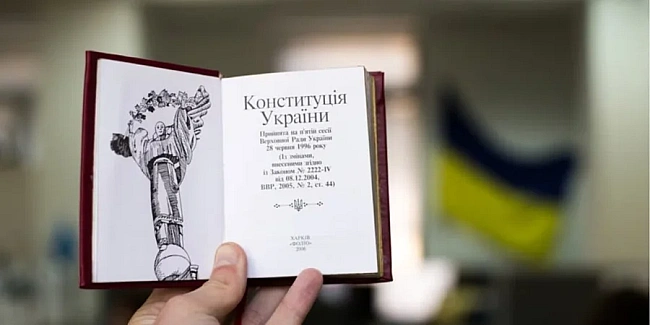 Конституція
України
Прийнята на п'ятій сесії
Верховної Ради України
28 червня 1996 року
(Із змінами,
внесеними згідно
із Законом № 2222-IV
від 08.12.2004,
ВВР, 2005, № 2, ст. 44)
ХАРКІВ
«ФОЛІО»
2006